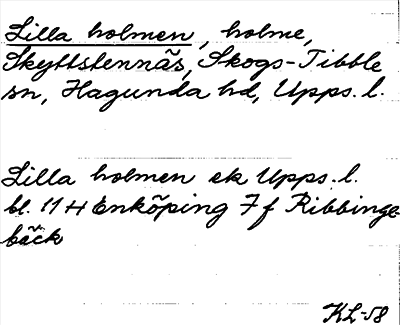 Lilla holmen, holme,
Skyttstennäs, Skogs-Tibble
sn, Hagunda hd, Upps. l.
Lilla holmen ek Upps. l.
bl. 11 H Enköping 7 f Ribbinge
bäck
KL-58